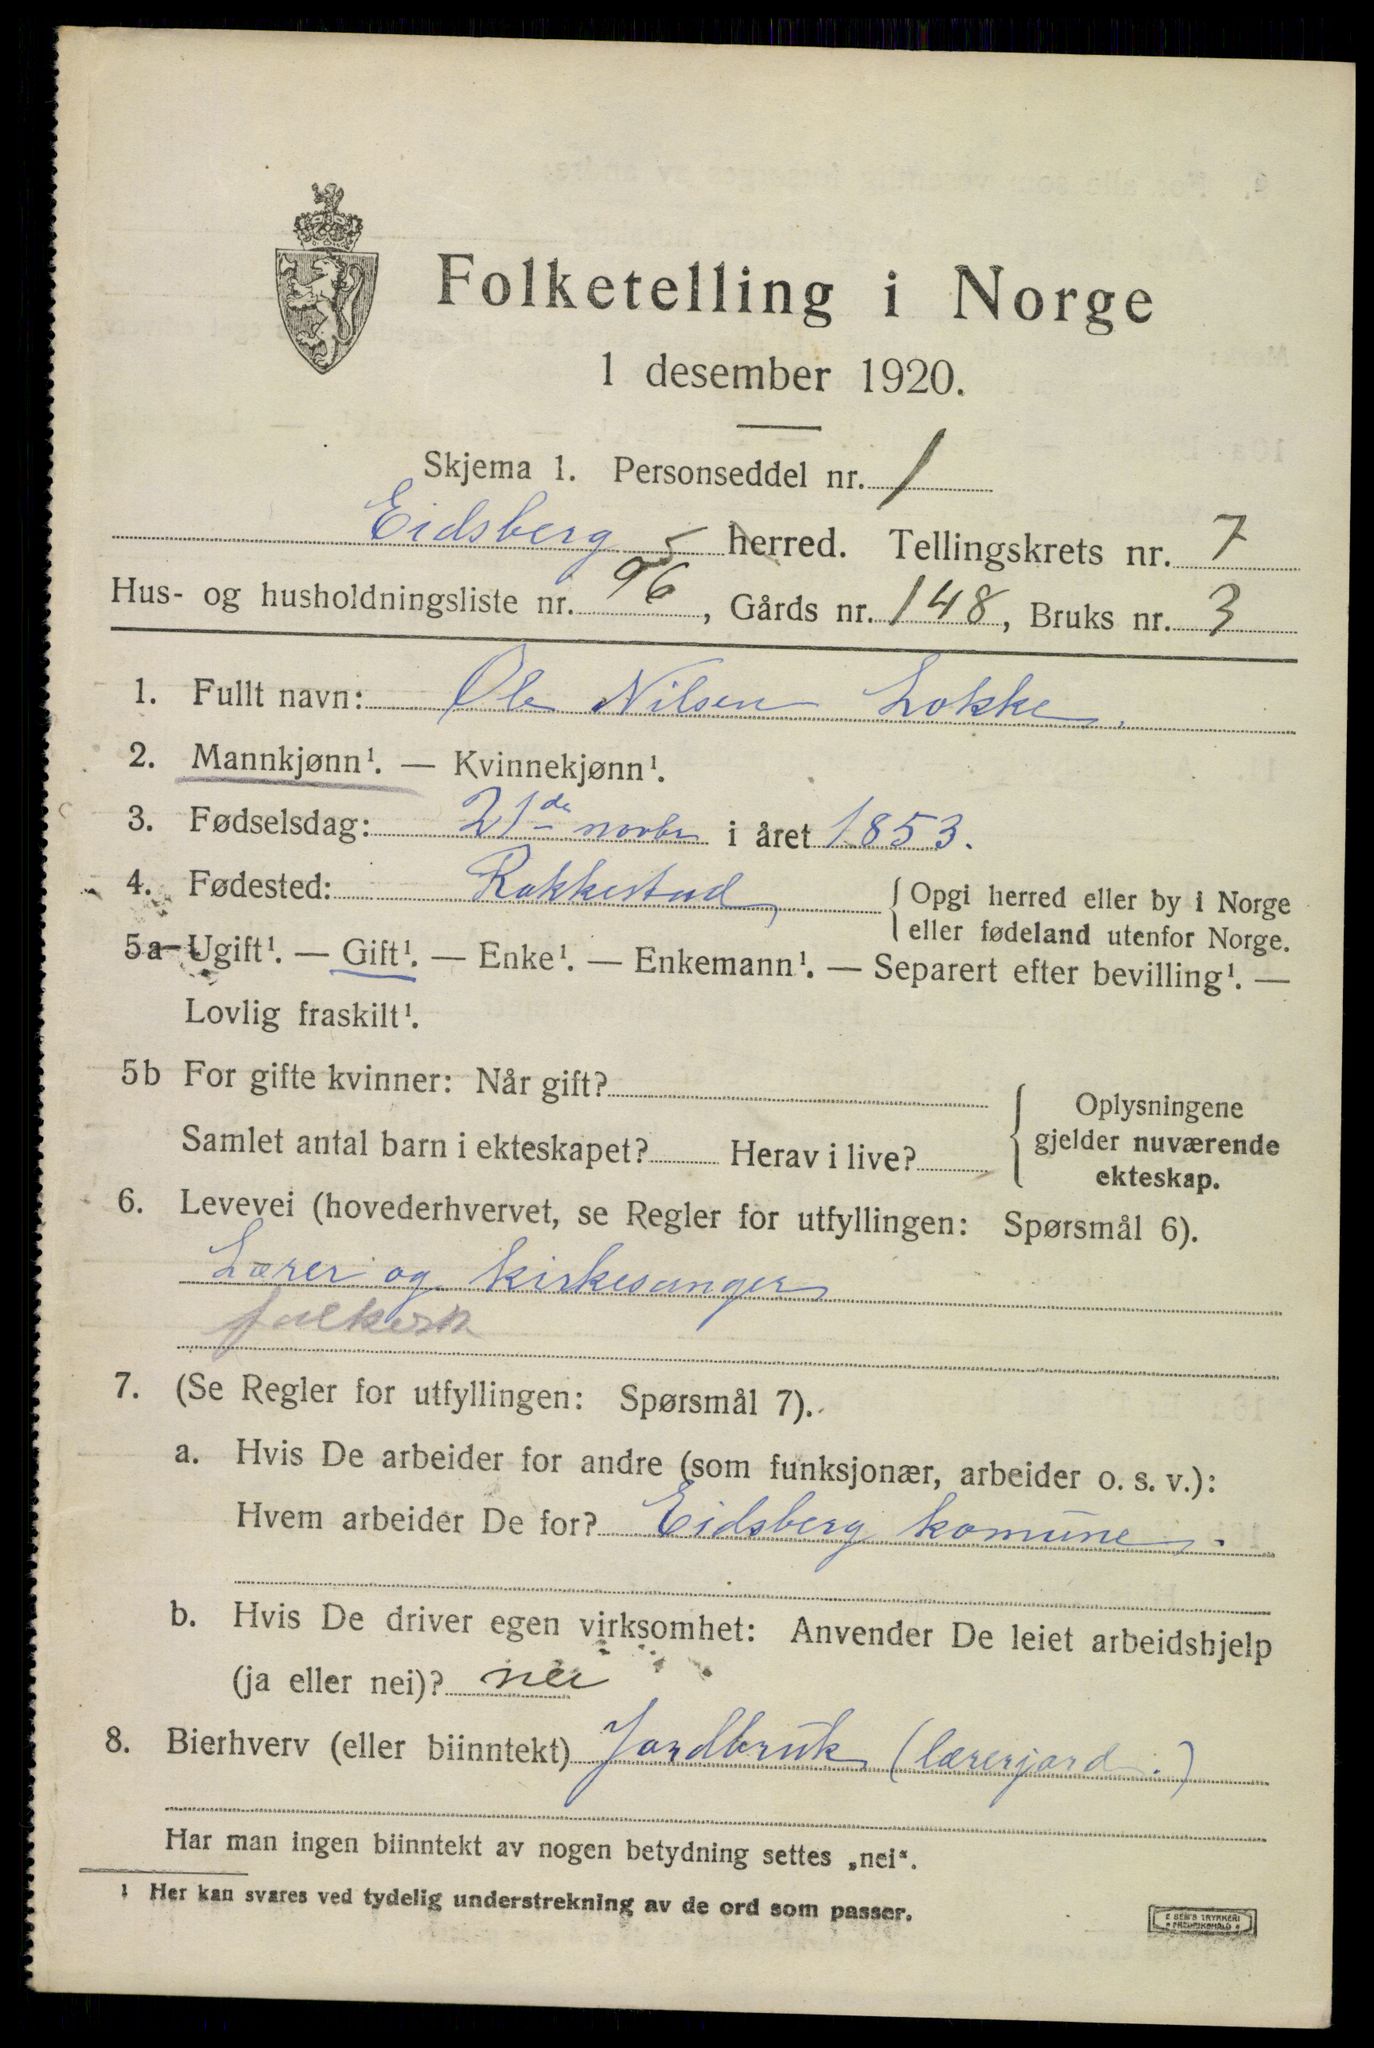 Folketelling i Norge
1 desember 1920.
Skjema 1. Personseddel nr. 1
Eidsberg herred. Tellingskrets nr. 7
Hus- og husholdningsliste nr. 96, Gårds nr. 148, Bruks nr. 3
1. Fullt navn: Ole Nilsen Løkke.
2. Mannkjønn¹. — Kvinnekjønn¹.
3. Fødselsdag: 21de novbr i året 1853.
4. Fødested: Rakkestad { Opgi herred eller by i Norge
eller fødeland utenfor Norge.
5a Ugift¹. — Gift¹. — Enke¹. — Enkemann¹. — Separert efter bevilling¹. —
Lovlig fraskilt¹.
5b For gifte kvinner: Når gift?
Samlet antal barn i ekteskapet? Herav i live?
Oplysningene
gjelder nuværende
ekteskap.
6. Levevei (hovederhvervet, se Regler for utfyllingen: Spørsmål 6).
Lærer og kirkesanger
folkesk
7. (Se Regler for utfyllingen: Spørsmål 7).
a. Hvis De arbeider for andre (som funksjonær, arbeider o. s. v.):
Hvem arbeider De for? Eidsberg komune.
b. Hvis De driver egen virksomhet: Anvender De leiet arbeidshjelp
(ja eller nei)? nei
8. Bierhverv (eller biinntekt) Jordbruk (lærerjord.)
Har man ingen biinntekt av nogen betydning settes „nei“.
¹ Her kan svares ved tydelig understrekning av de ord som passer.